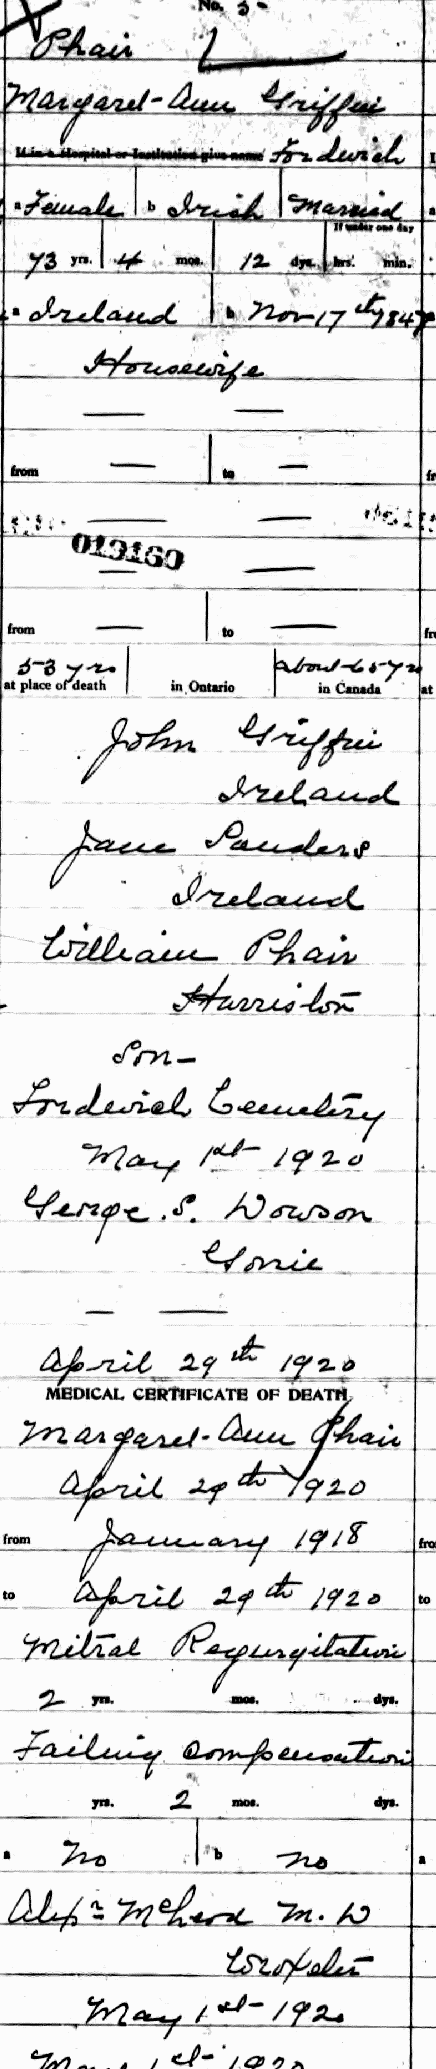 No. 3
Phair
Margaret-Ann Griffin
If in a Hospital or Institution give name Fordwich
a Female b Irish Married
If under one day
73 yrs. 4 mos. 12 dys. hrs. min.
a Ireland b Nov 17th 1847
Housewife
— —
from — to —
— —
019160
— —
from — to —
53 yrs about 65 yrs
at place of death in Ontario in Canada
John Griffin
Ireland
Jane Sanders
Ireland
William Phair
Harriston
Son-
Fordwich Cemetery
May 1st 1920
George. S. Dowson
Gorrie
— —
April 29th 1920
MEDICAL CERTIFICATE OF DEATH
Margaret-Ann Phair
April 29th 1920
from January 1918
to April 29th 1920
Mitral Regurgitation
2 yrs. mos. dys.
Failing compensation
yrs. 2 mos. dys.
a No b no
Alexr McLeod M.D
Wroxeter
May 1st- 1920
May 1st- 1920